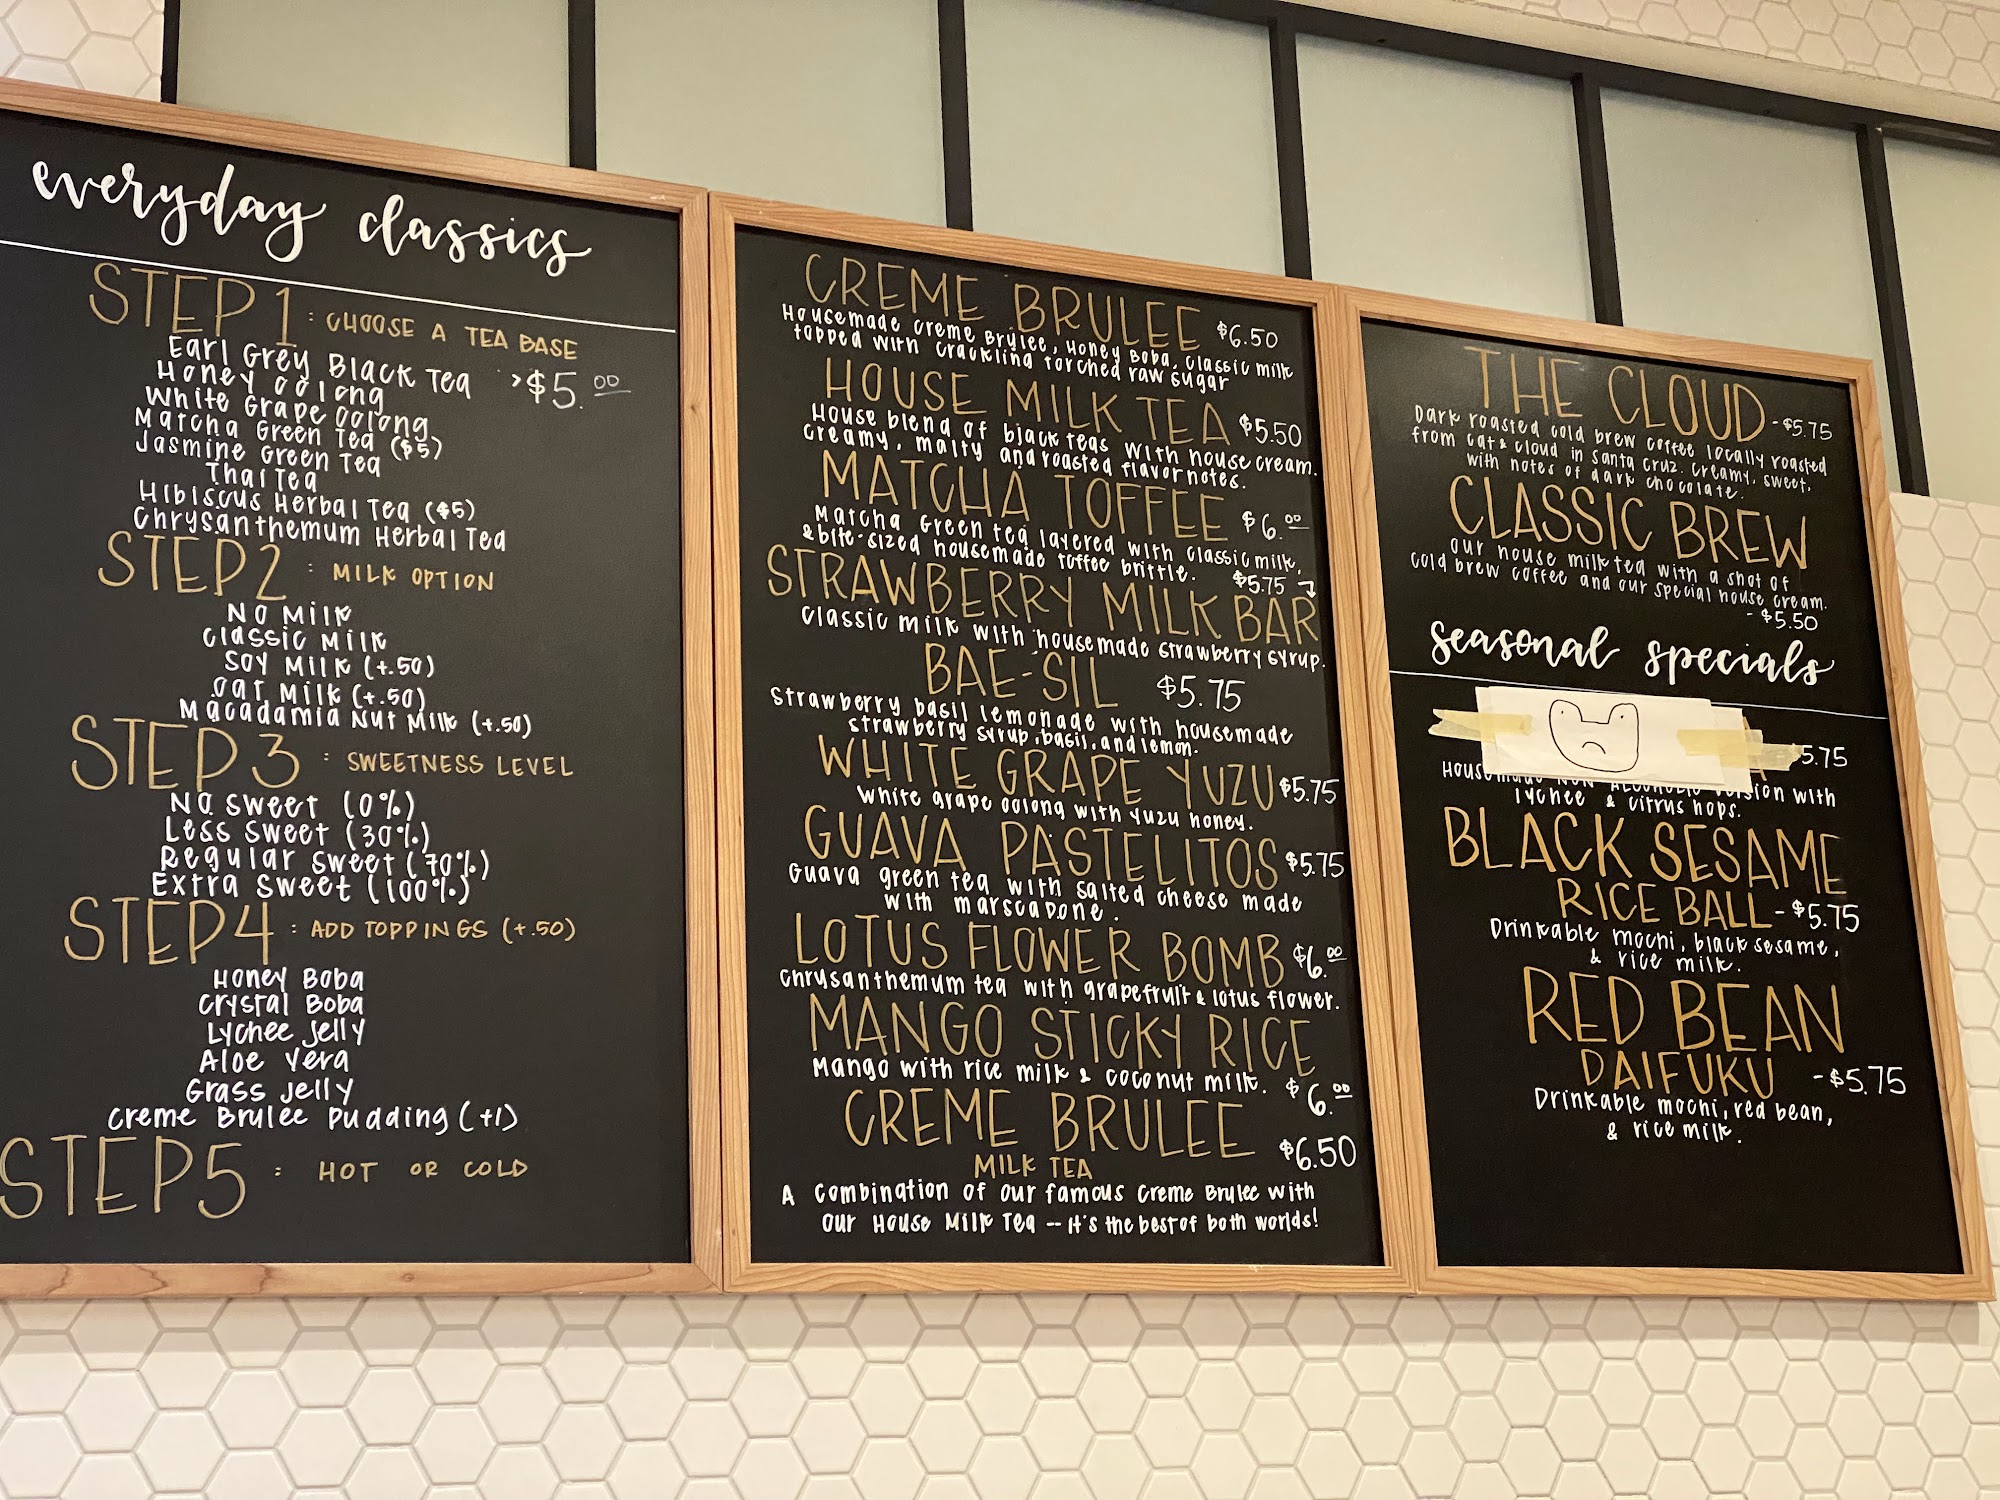 everyday classics
STEP 1 : CHOOSE A TEA BASE
Earl Grey Black Tea > $5.00
Honey Oolong
White Grape Oolong
Matcha Green Tea ($5)
Jasmine Green Tea
Thai Tea
Hibiscus Herbal Tea ($5)
Chrysanthemum Herbal Tea
STEP 2 : MILK OPTION
No Milk
Classic Milk
Soy Milk (+.50)
Oat Milk (+.50)
Macadamia Nut Milk (+.50)
STEP 3 : SWEETNESS LEVEL
No Sweet (0%)
Less Sweet (30%)
Regular Sweet (70%)
Extra Sweet (100%)
STEP 4 : ADD TOPPINGS (+.50)
Honey Boba
Crystal Boba
Lychee Jelly
Aloe Vera
Grass Jelly
Creme Brulee Pudding (+1)
STEP 5 : HOT OR COLD
CREME BRULEE $6.50
Housemade Creme Brulee, Honey Boba, Classic milk
topped with crackling torched raw sugar
HOUSE MILK TEA $5.50
House blend of black teas with house cream.
Creamy, malty and roasted flavor notes.
MATCHA TOFFEE $6.00
Matcha Green tea layered with classic milk,
& bite-sized housemade toffee brittle. $5.75
STRAWBERRY MILK BAR
Classic milk with housemade strawberry syrup.
BAE-SIL $5.75
Strawberry basil lemonade with housemade
strawberry syrup, basil, and lemon.
WHITE GRAPE YUZU $5.75
White grape oolong with yuzu honey.
GUAVA PASTELITOS $5.75
Guava green tea with salted cheese made
with marscapone.
LOTUS FLOWER BOMB $6.00
Chrysanthemum tea with grapefruit & lotus flower.
MANGO STICKY RICE
Mango with rice milk & coconut milk. $6.00
CREME BRULEE $6.50
MILK TEA
A combination of our famous Creme Brulee with
our House Milk Tea -- it's the best of both worlds!
THE CLOUD - $5.75
Dark roasted cold brew coffee locally roasted
from cat & cloud in Santa Cruz. Creamy, sweet,
with notes of dark chocolate.
CLASSIC BREW
Our house milk tea with a shot of
cold brew coffee and our special house cream.
- $5.50
seasonal specials
5.75
with
lychee & citrus hops.
BLACK SESAME
RICE BALL - $5.75
Drinkable mochi, black sesame,
& rice milk.
RED BEAN
DAIFUKU - $5.75
Drinkable mochi, red bean,
& rice milk.